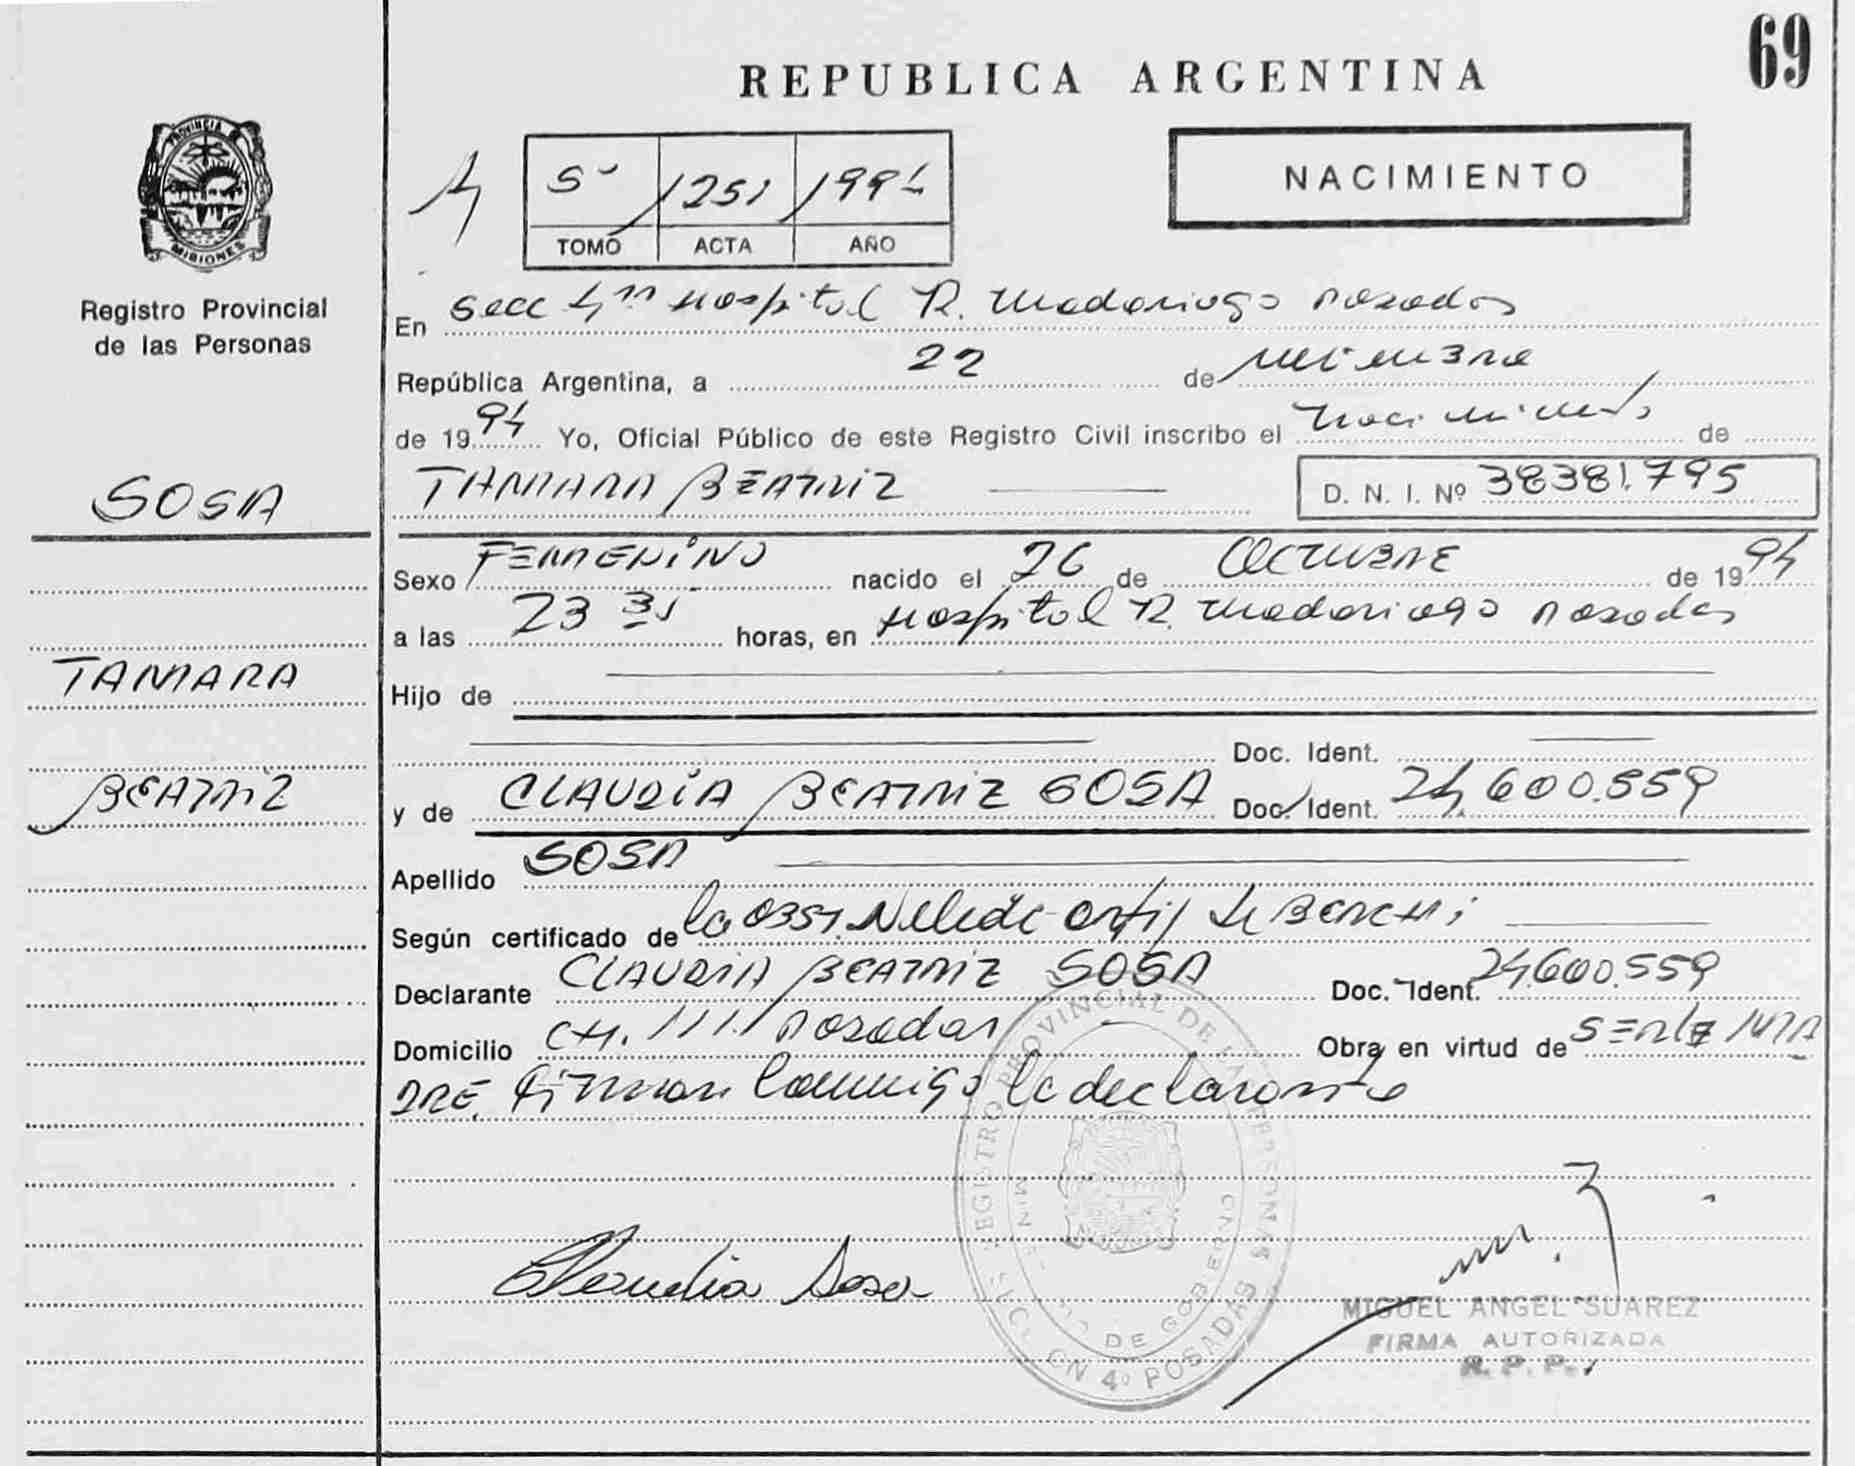 69
REPUBLICA ARGENTINA
PROVINCIA DE
MISIONES
Registro Provincial
de las Personas
5º 1251 1994
TOMO ACTA AÑO
NACIMIENTO
En Secc 4ta Hospital R. Madariaga Posadas
República Argentina, a 22 de
de 1994 Yo, Oficial Público de este Registro Civil inscribo el nacimiento de
SOSA
TAMARA BEATRIZ D. N. I. Nº 38381.795
Sexo FEMENINO nacido el 26 de OCTUBRE de 1994
a las 23 horas, en Hospital R. Madariaga Posadas
TAMARA
Hijo de
Doc. Ident.
BEATRIZ
y de CLAUDIA BEATRIZ SOSA Doc. Ident. 24.600.559
Apellido SOSA
Según certificado de la OBST. Nelide Ortiz de
Declarante CLAUDIA BEATRIZ SOSA Doc. Ident. 24.600.559
Domicilio CH. 111 Posadas Obra en virtud de SER LA MA
DRE. Firman Conmigo la declarante
REGISTRO PROVINCIAL DE LAS PERSONAS
DE GOBIERNO
4º POSADAS
Claudia Sosa
MIGUEL ANGEL SUAREZ
FIRMA AUTORIZADA
R. P. P.